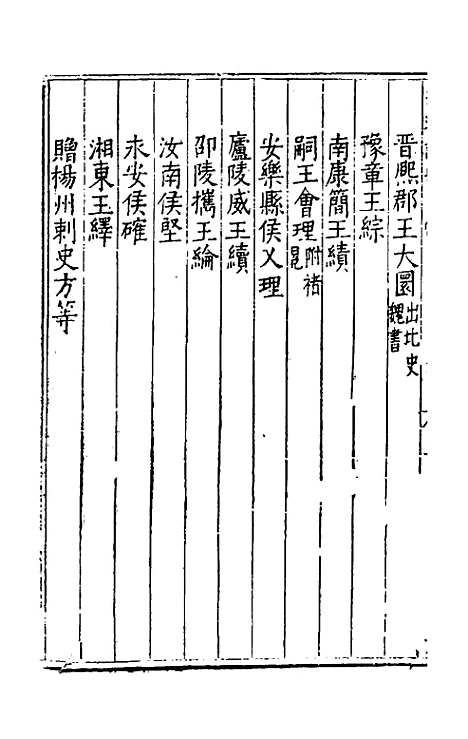 晋熈郡王大圜出北史魏書
豫章王綜
南康簡王績
嗣王會理附禇冕
安樂縣侯乂理
廬陵威王續
邵陵攜王綸
汝南侯堅
永安侯確
湘東王繹
贈楊州刺史方等